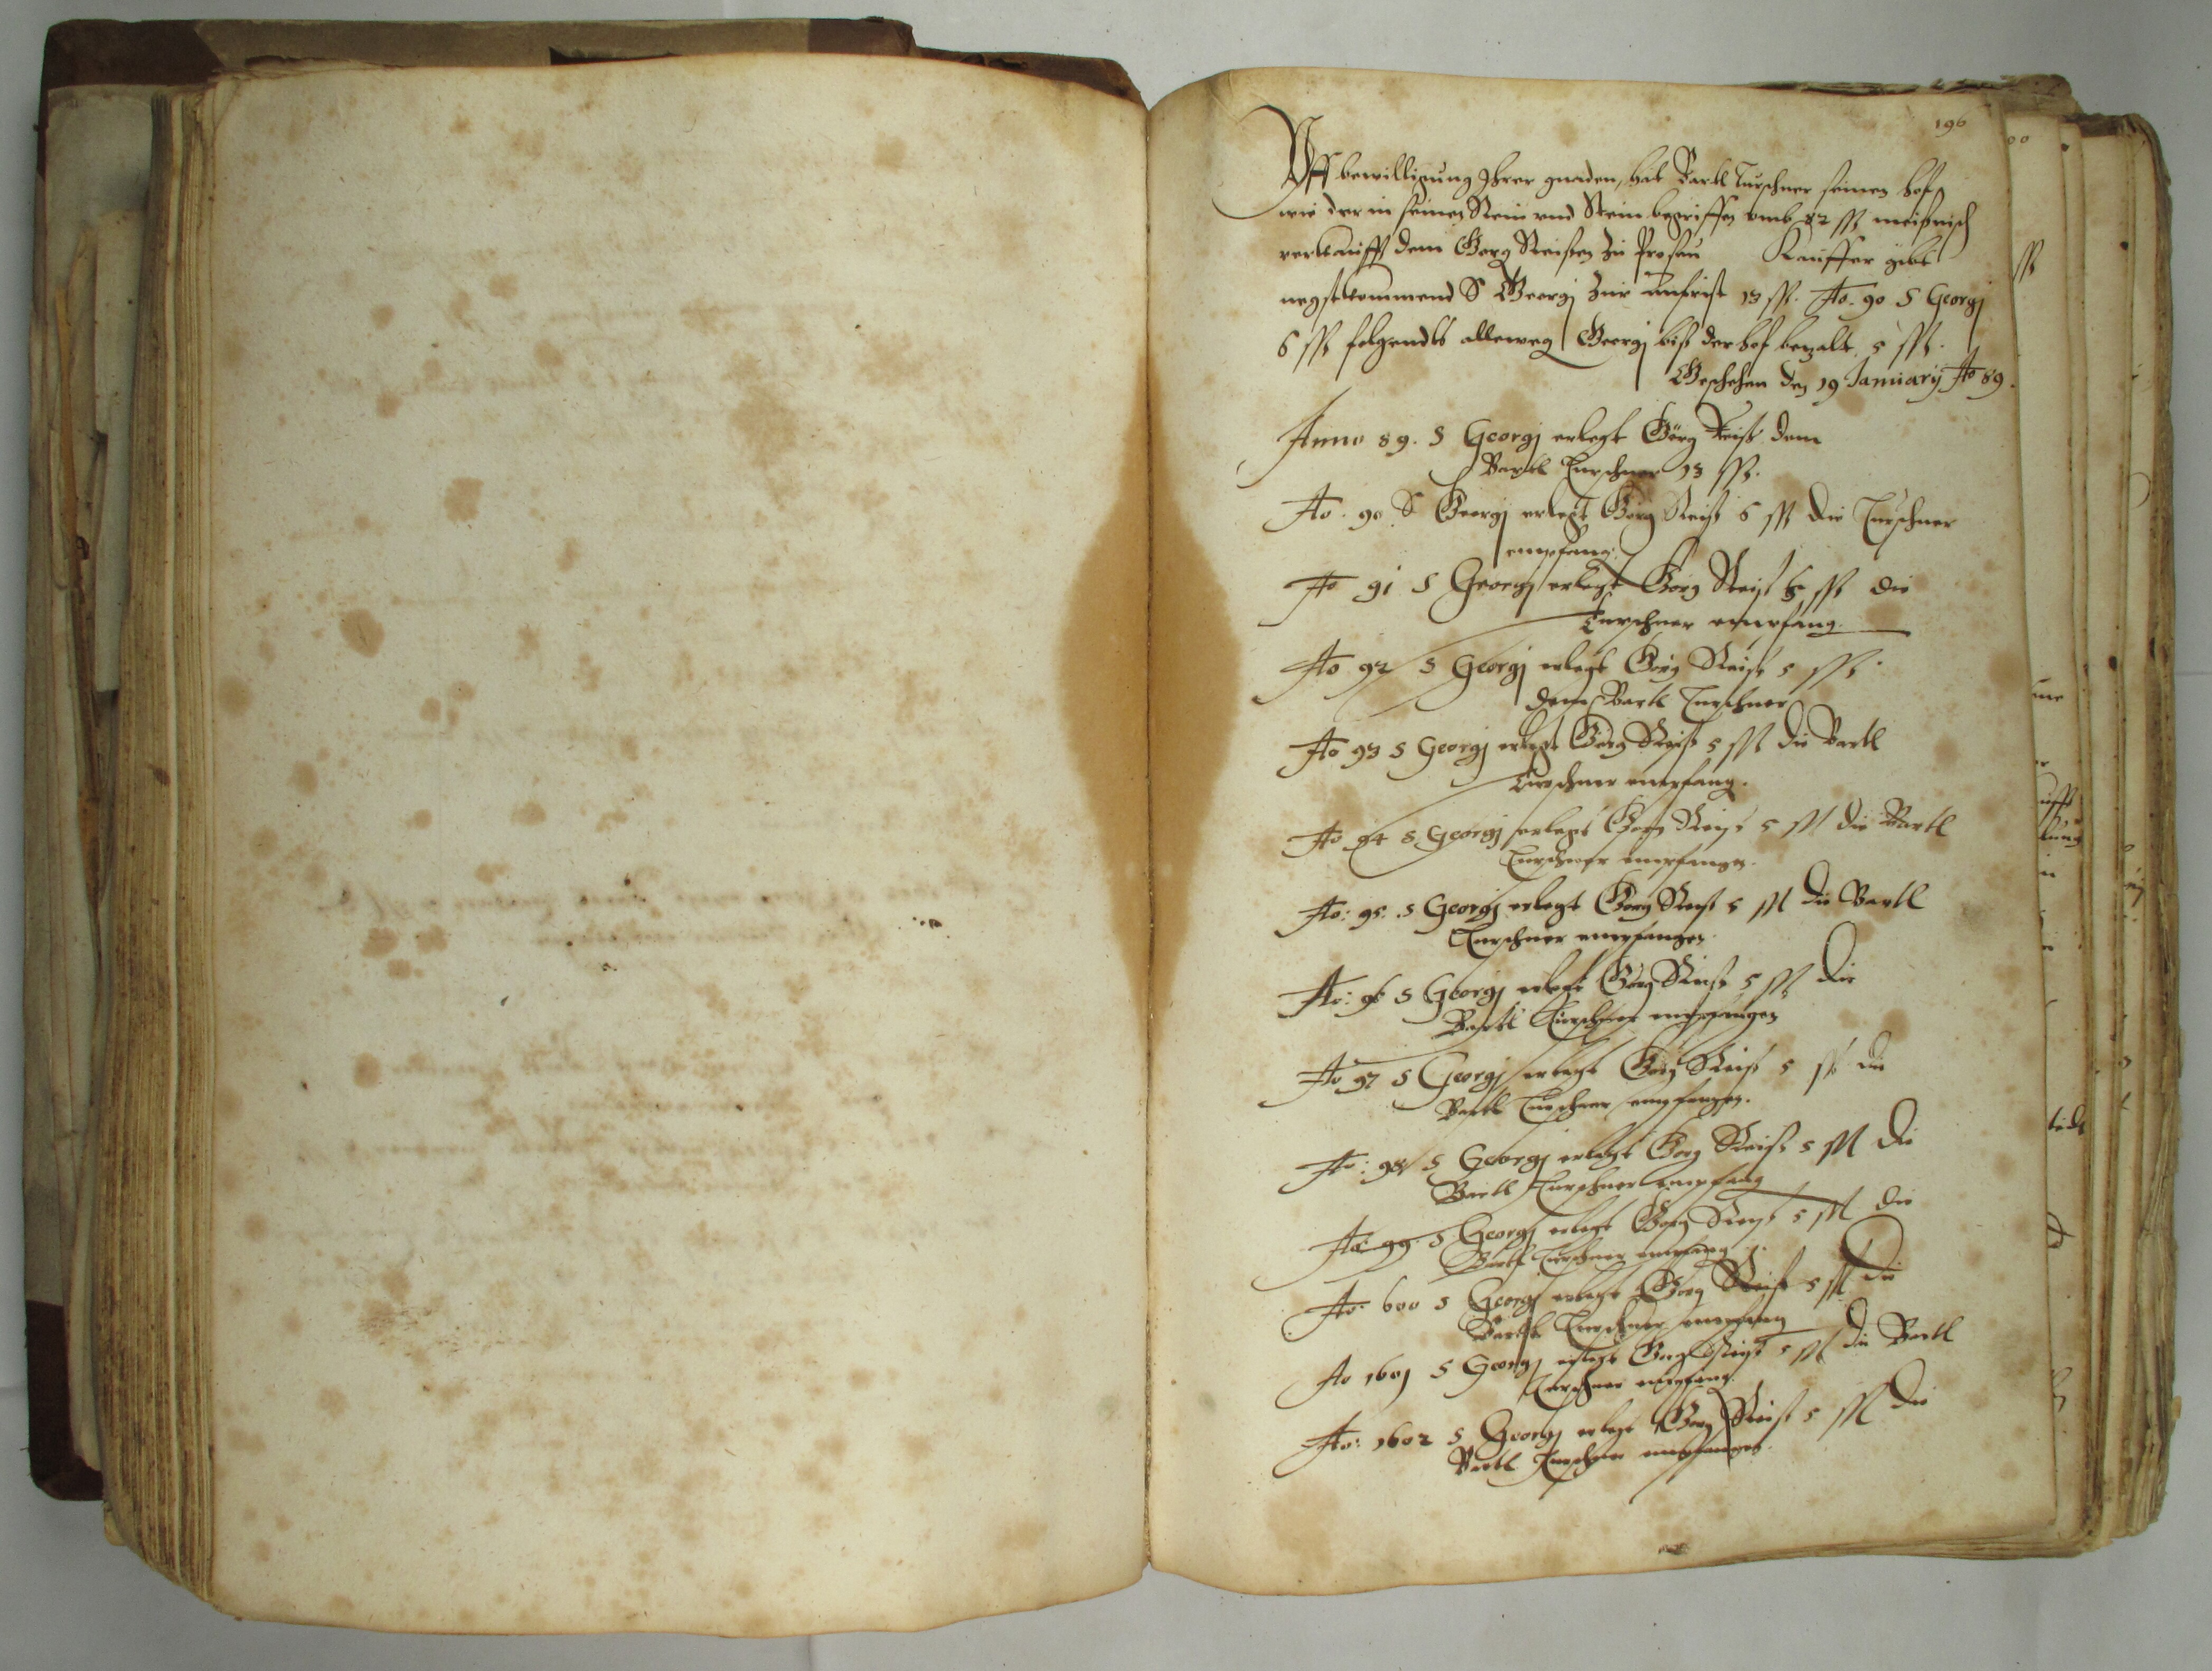 196
Vff bewilligung Ihrer gnaden, hat Bartl Turschner seinen hof
wie der in seinen Rein vnd Stein begriffen vmb 82 ßß meißnisch
verkaufft dem Georg Reissen zu Prosau Kauffer gibt
negstkommend S Georgj zur anfrist 13 ßß. Ao. 90 S Georgj
6 ßß folgendts alleweg Georgj biß der hof bezalt 5 ßß.
Geschehen den 19 January Ao 89.
Anno 89. S Georgj erlegt Görg Reiß dem
Bartl Turschner 13 ßß.
Ao. 90 S Georgj erlegt Görg Reiß 6 ßß die Turschner
empfang.
Ao 91 S Georgj erlegt Görg Reiß ßß die
Turschner empfang.
Ao 92 S Georgj erlegt Görg Reiß 5 ßß.
dem Bartl Turschner
Ao 93 S Georgj erlegt Görg Reiß 5 ßß die Bartl
Turschner empfang.
Ao 94 S Georgj erlegt Görg Reiß 5 ßß die Bartl
Turschner empfangen.
Ao: 95. S Georgj erlegt Görg Reiß 5 ßß die Bartl
Turschner empfangen.
Ao: 96 S Georgj erlegt Görg Reiß 5 ßß die
Bartl Turschner empfangen
Ao 97 S Georgj erlegt Görg Reiß 5 ßß die
Bartl Turschner empfangen.
Ao: 98 S Georgj erlegt Görg Reiß 5 ßß die
Bartl Turschner empfang
Ao: 99. S Georgj erlegt Görg Reiß 5 ßß die
Bartl Turschner empfang.
Ao: 600 S Georgj erlegt Görg Reiß 5 ßß die
Bartl Turschner empfang
Ao 1601 S Georgj erlegt Görg Reiß 5 ßß die Bartl
Turschner empfang.
Ao: 1602 S Georgj erlegt Görg Reiß 5 ßß die
Bartl Turschner empfangen.